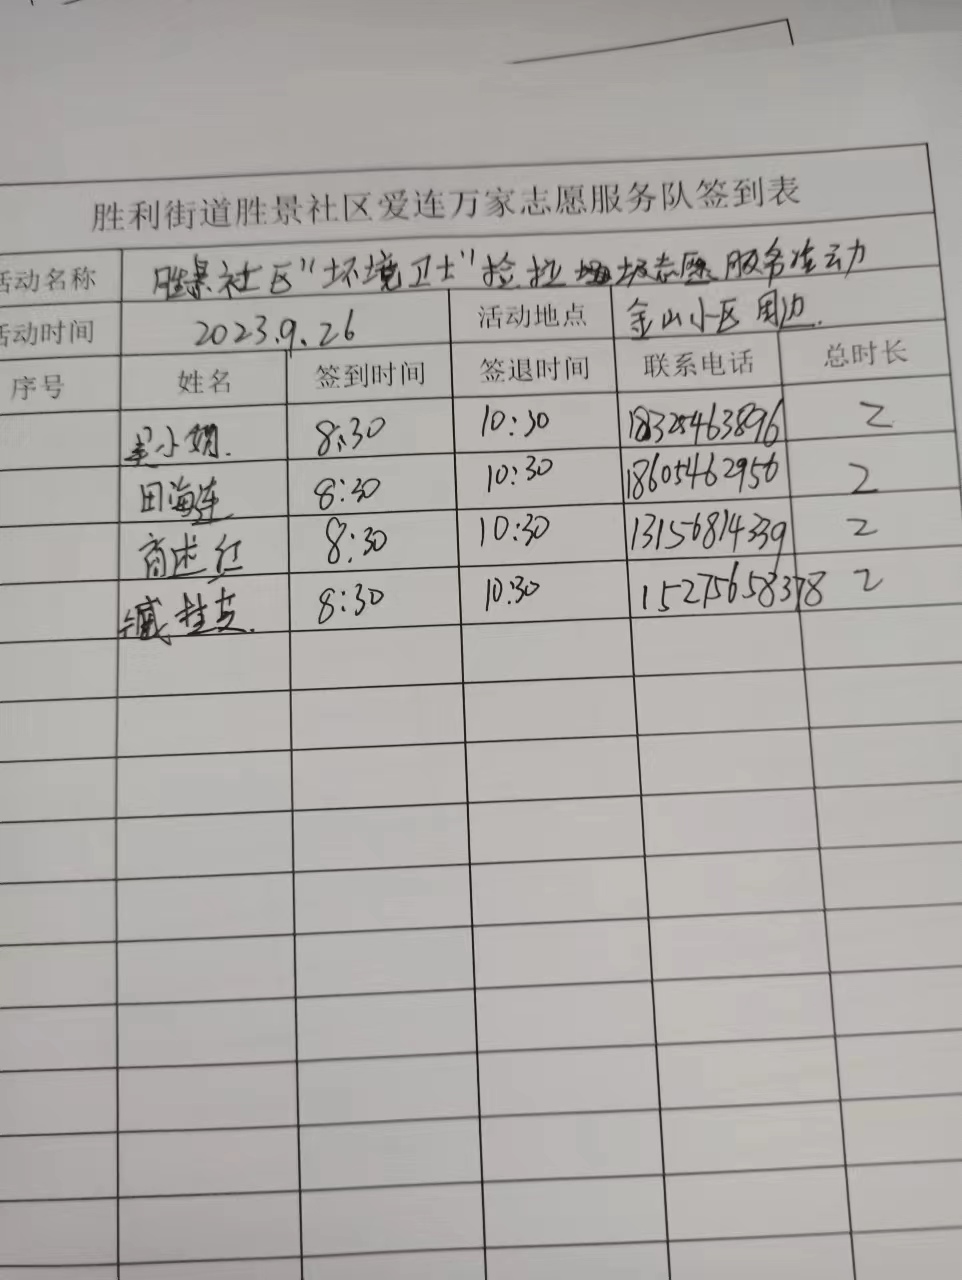 胜利街道胜景社区爱连万家志愿服务队签到表
活动名称 胜景社区"环境卫士"捡拉圾志愿服务活动
活动时间 2023.9.26 活动地点 金山小区周边.
序号 姓名 签到时间 签退时间 联系电话 总时长
吴小娟. 8:30 10:30 18325463896 2
田海连 8:30 10:30 18605462956 2
商述红 8:30 10:30 13156814339 2
臧桂芝. 8:30 10:30 15275658378 2